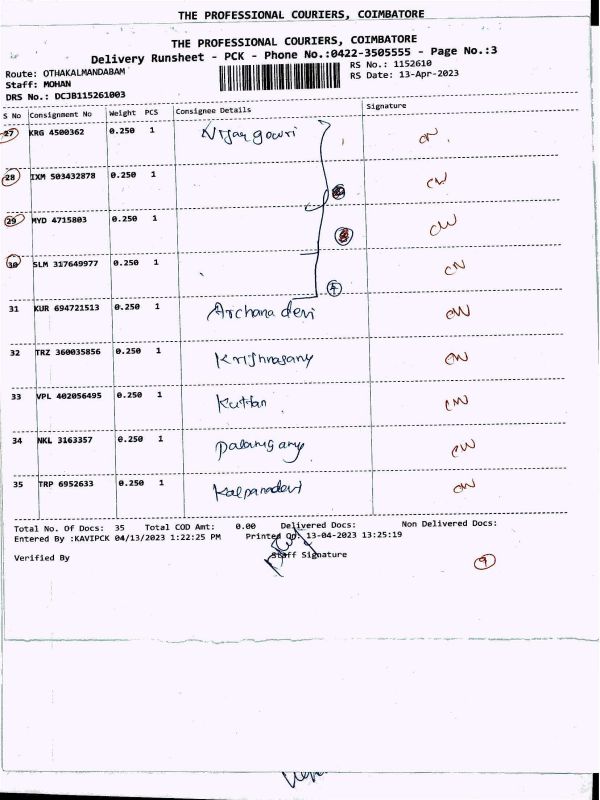 THE PROFESSIONAL COURIERS, COIMBATORE
THE PROFESSIONAL COURIERS, COIMBATORE
Delivery Runsheet - PCK - Phone No.:0422-3505555 - Page No.:3
Route: OTHAKALMANDABAM
RS No.: 1152610
Staff: MOHAN
RS Date: 13-Apr-2023
DRS No.: DCJB115261003
S No Consignment No Weight PCS Consignee Details Signature
27 KRG 4500362 0.250 1
28 IXM 503432878 0.250 1 CW
29 MYD 4715803 0.250 1 CW
30 SLM 317649977 0.250 1 CN
4
31 KUR 694721513 0.250 1 Archana devi CW
32 TRZ 360035856 0.250 1 Krishnasany CW
33 VPL 402056495 0.250 1 Kuttan CW
34 NKL 3163357 0.250 1 CW
35 TRP 6952633 0.250 1 Kalpanadevi CW
Total No. Of Docs: 35 Total COD Amt: 0.00 Delivered Docs: Non Delivered Docs:
Entered By :KAVIPCK 04/13/2023 1:22:25 PM Printed On: 13-04-2023 13:25:19
Verified By Staff Signature
9